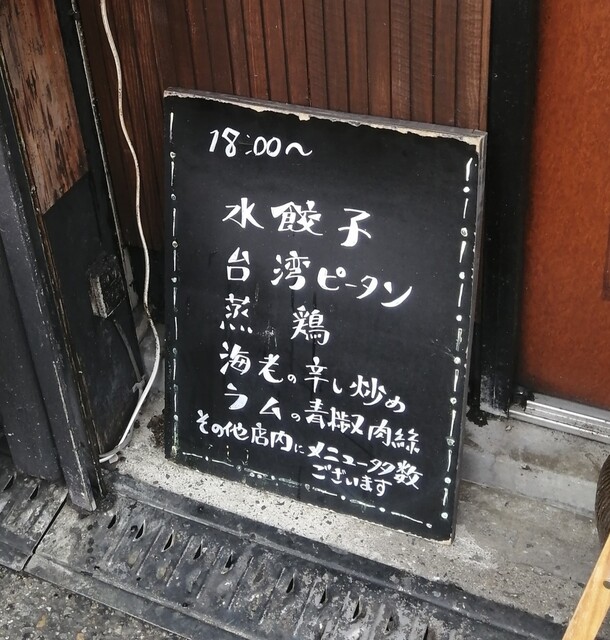 18:00〜
水餃子
台湾ピータン
蒸鶏
海老の辛し炒め
ラムの青椒肉絲
その他店内にメニュー多数
ございます